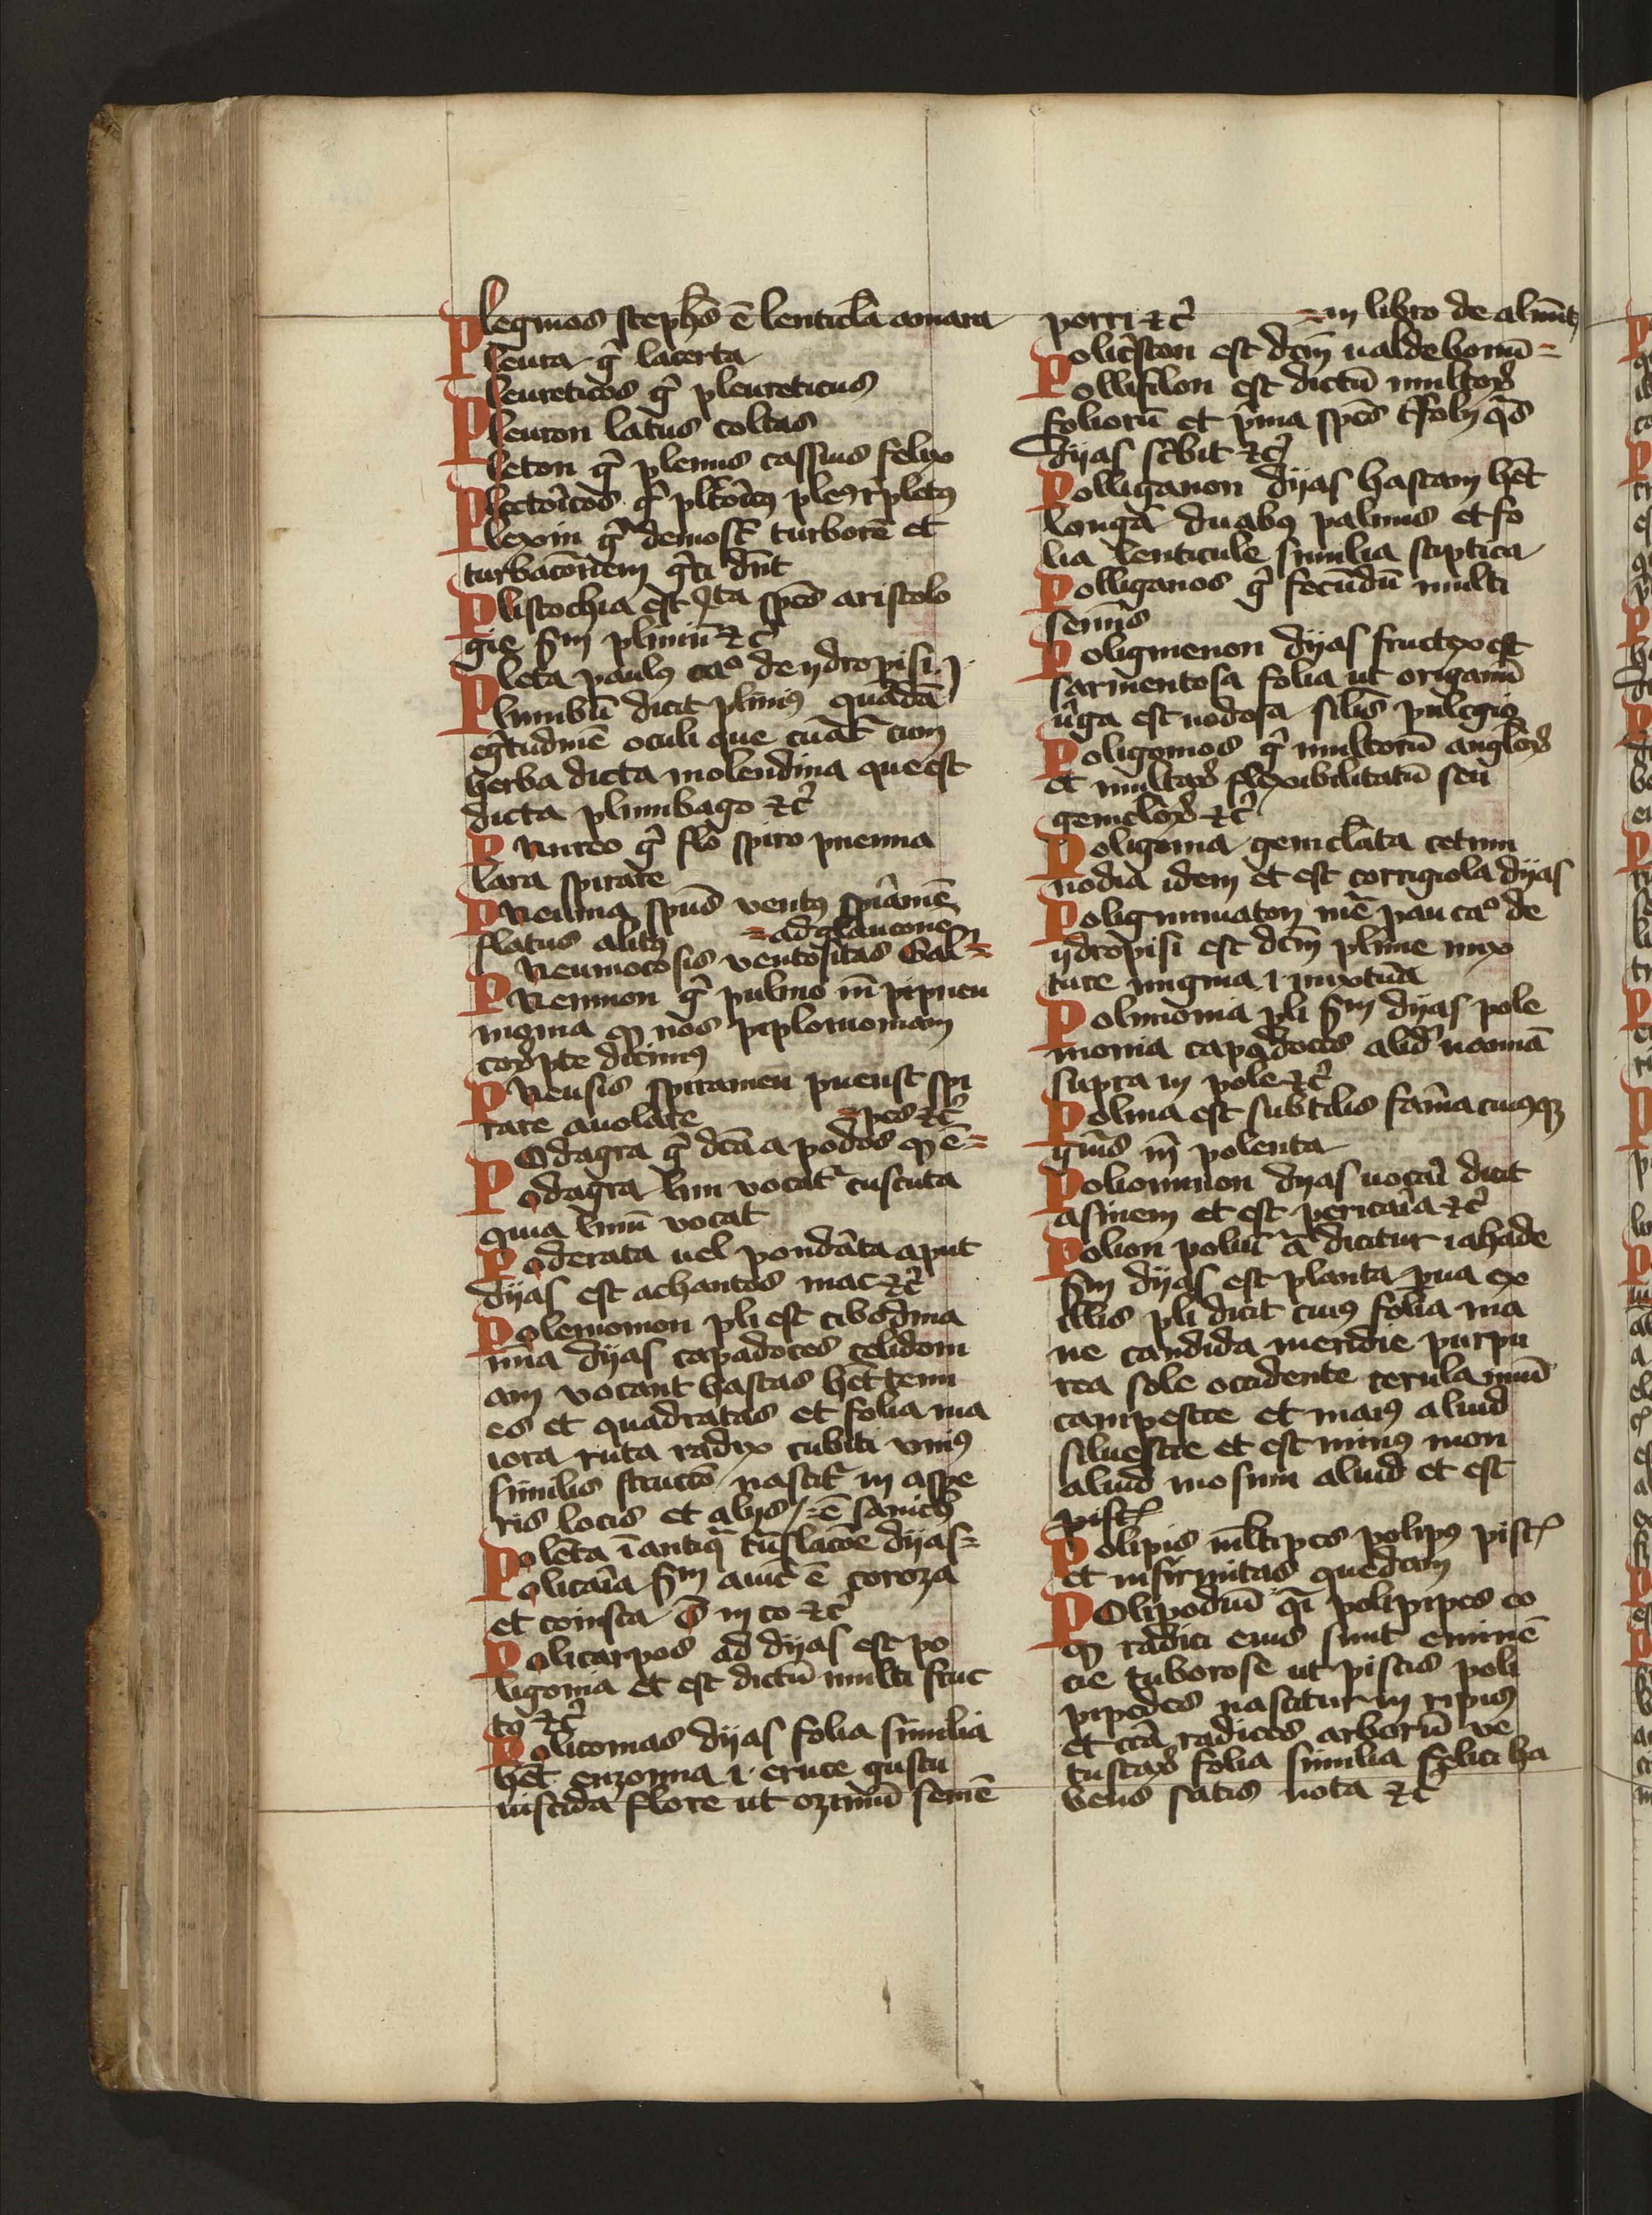 Plegmos stephs ē lenticla amara
Pleura gͥ lacerta
Pleureticos gͥ pleureticus
Pleuron latus costas
Pleton gͥ plenus cassius felix
Plectoicos gͥ
Plexin gͥ demost turbore et
turbacoͤnem gͥci dn̄t
Plistochia est ꝗta spēs aristolo
gie ẜm pliniū ⁊cͥ
Pleta paulꝰ caº de ydropisi
Plumbū dicit pliniꝰ quādā
egͥtudinē oculi que cūat̄ cum
herba dicta molendina que est
dicta plumbago ⁊cͥ
Pnureo gͥ flo spiro pneuma
lara spirare
Pneuma spūs ventꝰ spiāmē
flatus alitꝰ = ad glauconē
Pneumocosis ventositas Gal=
Pneumon gͥ pulmo īn pipneu
monia ꝙ nos piplomoniam
corꝛpte dicimꝰ
Pneusis spiramen pneust spi
rare auolare =pes ⁊cͥ
Podagra gͥ dc̄a a podos ꝙ ē=
Podagra lini vocat̄ cuscuta
quia linū vocat
Poderata uel pondāta aput
dyas est achantos mac ⁊cͥ
Polemomon pli est cibodma
nn̄a dyas capadoces celidoni
am vocant hastas hēt tenu
es et quadratas et folia ma
iora ruta radix cubiti vniꝰ
similis structō nascit̄ in aspe
ris locis et alijs =ē sanichꝰ
Polēta ī antiqͣ tn̄slacōe dyas=
Policaīa ẜm auic̄ ē coroza
et comsta ō in co ⁊cͥ
Policarpos ad dyas est po
ligonia et est dictū multi fruc
tꝰ ⁊cͥ
Policomas dyas folia similia
hēt enzonna .i. eruce gustu
uiscida flore ut ozimū semē
porri ⁊cͥ =in libro de alimēt̄
Policͥston est dcm̄ ualde bonū=
Pollifilon est dictū multoꝝ
foliorū et pͥma spēs tͥfolij qͣs
dyas scͥbit ⁊cͥ
Polliganon dyas hastam hēt
longā duabꝰ palmis et fo
lia lenticule similia stiptica
Polliganos gͥ fecūdū multi
semīs
Poligmenon dyas fructex est
sarmentosa folia ut origanū
uͥga est nodosa silīs pulegio
Poligomos gͥ multorū angloꝝ
et multaꝝ flexibilitatū seu
genicloꝝ ⁊cͥ
Poligonia geniclata centum
nodia idem et est corrigiola dyas
Poligmmaton mē pau caº de
ydropisi est dcm̄ plime mix
ture migma .i. mixtūa
Polimonia pli ẜm dyas pole
monia capadoces aliḋ nominā
supra in pole ⁊cͥ
Polina est subtilis faīna cuiꝰqꝫ
gn̄is īn polenta
Poliommon dyas uocaī dicit
asinem et est pericaīa ⁊cͥ
Polion poliū ā dicitur iahade
ẜm dyas est planta pua ex
illis pli dicit cuiꝰ folia ma
ne candida meridie purpu
rea sole occidente cerula unū
campestre et maiꝰ aliud
siluestre et est minꝰ mon
aliud mosum aliud et est
pisc̄
Polipis mltipes polipꝰ pisc̄
et infirmitas quedam
Polipodiū qī polipipes eo
ꝙ radici eius sunt eminē
cie tuborose ut piscis poli
pipedes nascitur in ripiis
et ccā radices arborū ve
tustaꝝ folia similia felici ha
bens satis nota ⁊cͥ